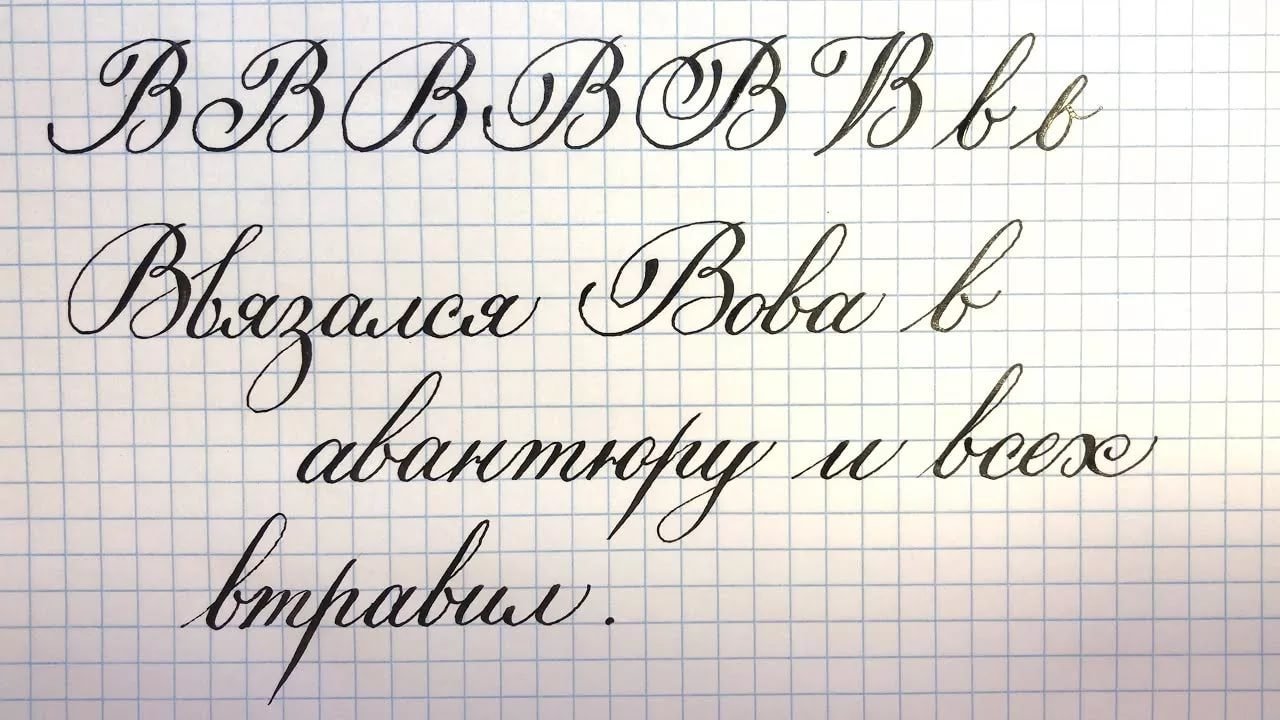 В В В В В В в в
Ввязался Вова в
авантюру и всех
втравил.